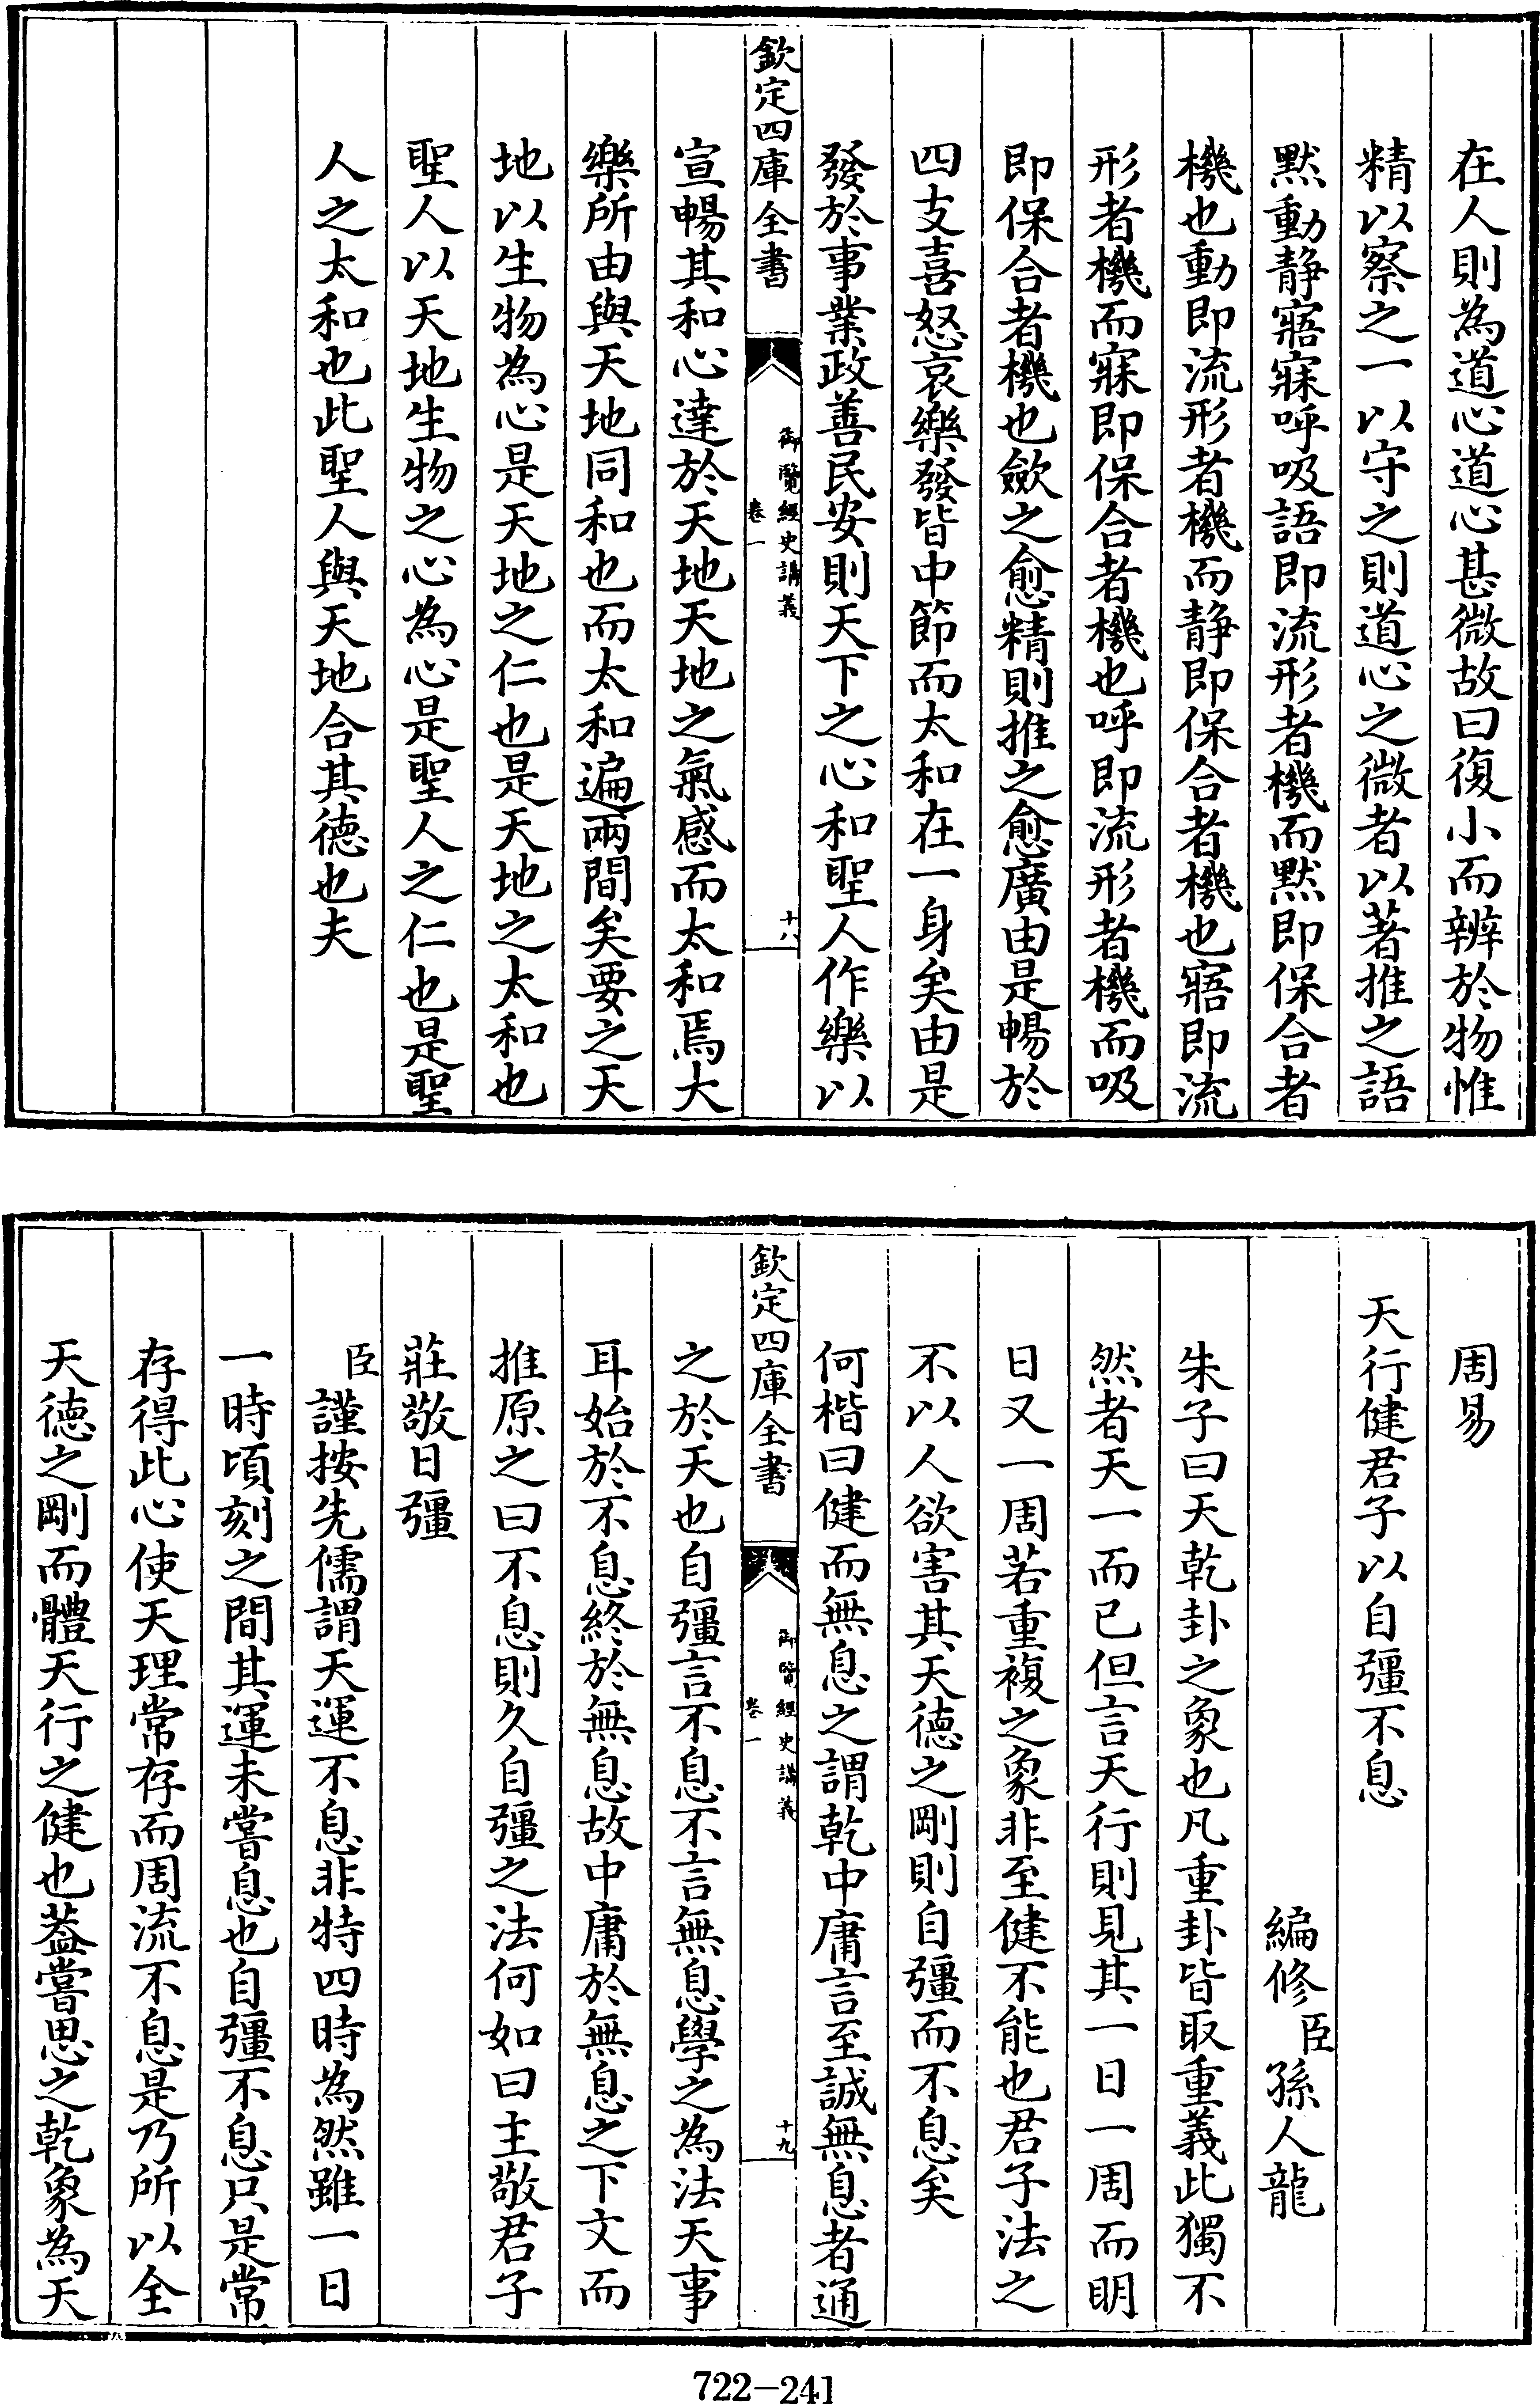 在人則為道心道心甚微故曰復小而辨於物惟
精以察之一以守之則道心之微者以著推之語
黙動静寤寐呼吸語即流形者機而黙即保合者
機也動即流形者機而静即保合者機也寤即流
形者機而寐即保合者機也呼即流形者機而吸
即保合者機也歛之愈精則推之愈廣由是暢於
四支喜怒哀樂發皆中節而太和在一身矣由是
發於事業政善民安則天下之心和聖人作樂以
欽定四庫全書
御覽經史講義
卷一
十八
宣暢其和心達於天地天地之氣感而太和焉大
樂所由與天地同和也而太和遍兩間矣要之天
地以生物為心是天地之仁也是天地之太和也
聖人以天地生物之心為心是聖人之仁也是聖
人之太和也此聖人與天地合其德也夫
周易
天行健君子以自彊不息
編修臣孫人龍
朱子曰天乾卦之象也凡重卦皆取重義此獨不
然者天一而已但言天行則見其一日一周而明
日又一周若重複之象非至健不能也君子法之
不以人欲害其天德之剛則自彊而不息矣
何楷曰健而無息之謂乾中庸言至誠無息者通
欽定四庫全書
御覽經史講義
卷一
十九
之於天也自彊言不息不言無息學之為法天事
耳始於不息終於無息故中庸於無息之下文而
推原之曰不息則久自彊之法何如曰主敬君子
莊敬日彊
臣謹按先儒謂天運不息非特四時為然雖一日
一時頃刻之間其運未嘗息也自彊不息只是常
存得此心使天理常存而周流不息是乃所以全
天德之剛而體天行之健也葢嘗思之乾象為天
722-241